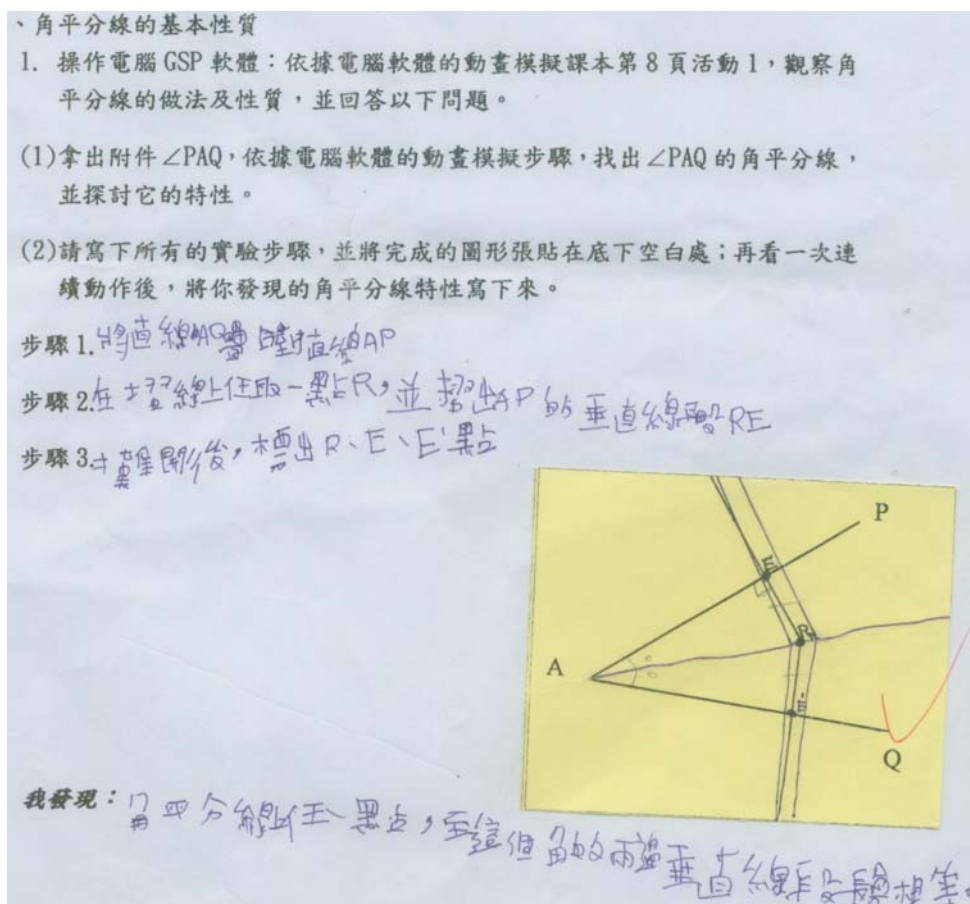 、角平分線的基本性質
1. 操作電腦 GSP 軟體：依據電腦軟體的動畫模擬課本第 8 頁活動 1，觀察角
平分線的做法及性質，並回答以下問題。
(1)拿出附件∠PAQ，依據電腦軟體的動畫模擬步驟，找出∠PAQ 的角平分線，
並探討它的特性。
(2)請寫下所有的實驗步驟，並將完成的圖形張貼在底下空白處；再看一次連
續動作後，將你發現的角平分線特性寫下來。
步驟 1.將直線AQ疊對直線AP
步驟 2.在摺線上任取一點R，並摺出AP的垂直線段RE
步驟 3.攤開後，標出R、E、E'點
P
E
R
A
E'
Q
我發現：角平分線上任一點，至這個角的兩邊垂直線段長相等。